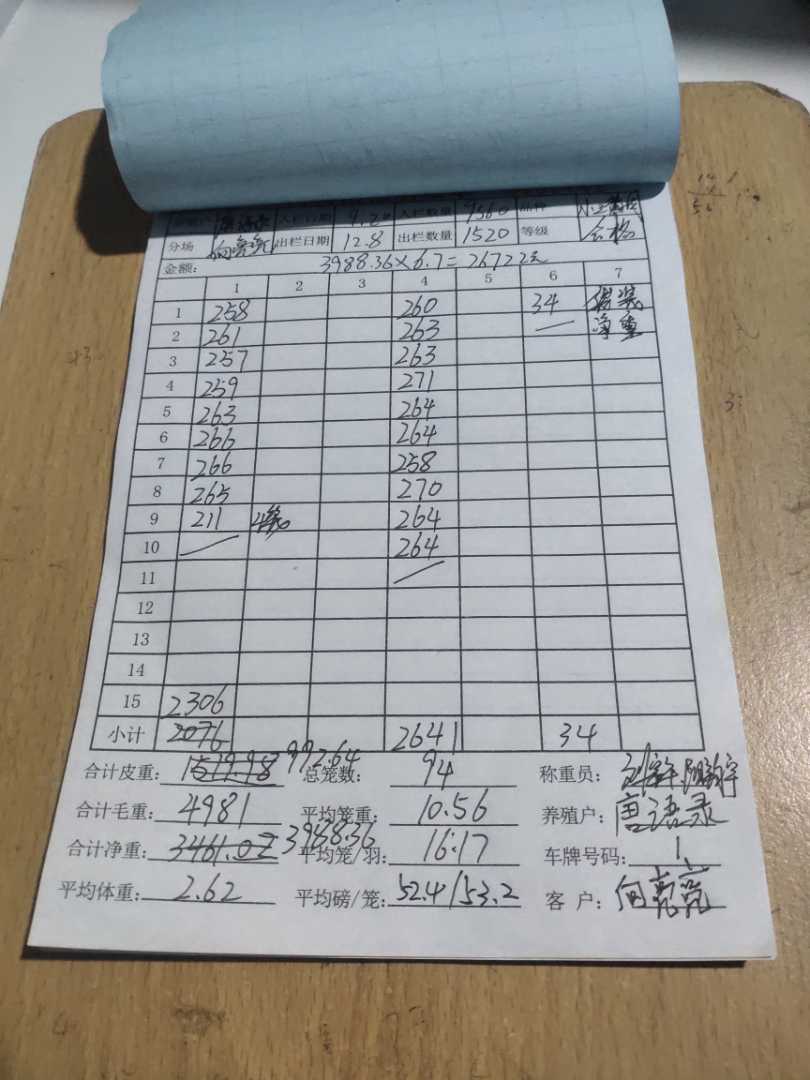 入栏日期 9.20 入栏数量 9560 品种
分场 向亮亮 出栏日期 12.8 出栏数量 1520 等级 合格
金额: 3988.36×6.7=26722元
1 2 3 4 5 6 7
1 258 260 34 袋装
2 261 263 净重
3 257 263
4 259 271
5 263 264
6 266 264
7 266 258
8 265 270
9 211 4袋 264
10 264
11
12
13
14
15 2306
小计 2076 2641 34
合计皮重: 1519.98 992.64 总笼数: 94 称重员:
合计毛重: 4981 平均笼重: 10.56 养殖户: 唐语录
合计净重: 3461.02 3988.36 平均笼/羽: 16:17 车牌号码: 1
平均体重: 2.62 平均磅/笼: 52.4/53.2 客户: 向亮亮